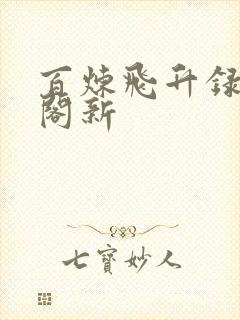 百炼飛升録
閣新
七寳妙人